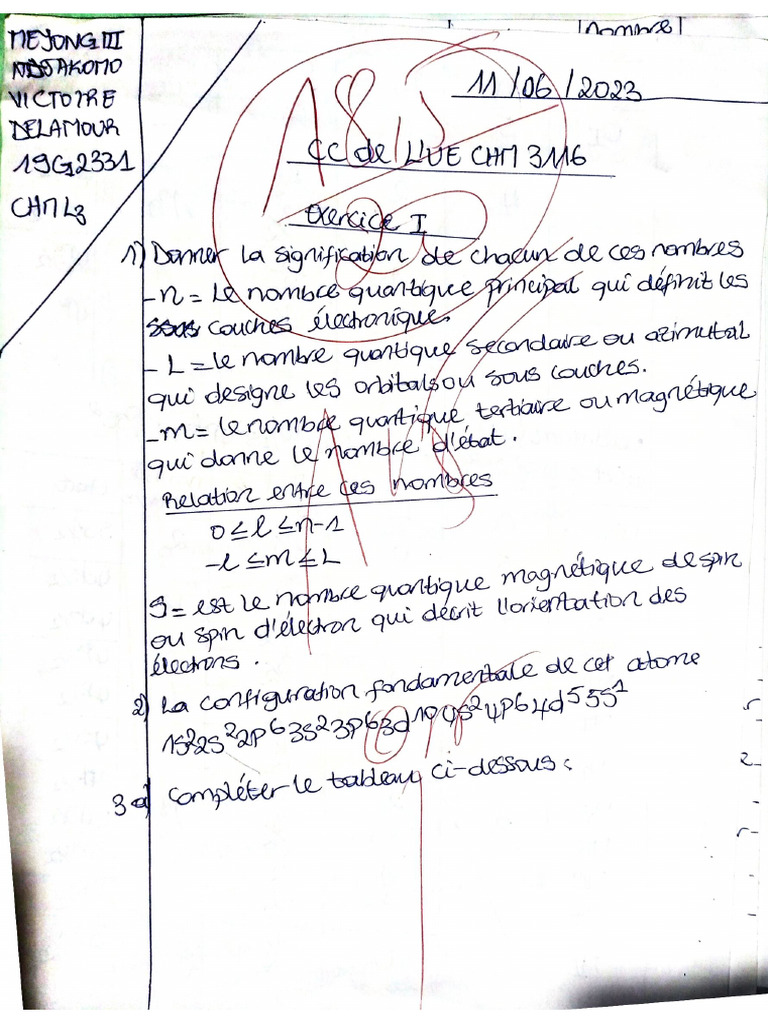 MEYONG III
NDJAKOMO
VICTOIRE
DELAMOUR
19G2331
CHM L3
|nombre|
11/06/2023
CC de L'UE CHM 3116
Exercice I
1) Donner la signification de chacun de ces nombres
- n = Le nombre quantique principal qui définit les
sous couches électronique.
- L = le nombre quantique secondaire ou azimutal
qui designe les orbitals ou sous couches.
- m = le nombre quantique tertiaire ou magnétique
qui donne le nombre d'état.
Relation entre ces nombres
0 ≤ l ≤ n-1
-l ≤ m ≤ L
S = est le nombre quantique magnétique de spin
ou spin d'électron qui décrit l'orientation des
électrons.
2) La configuration fondamentale de cet atome
1s²2s²2p⁶3s²3p⁶3d¹⁰4s²4p⁶4d⁵5s¹
3 a) Compléter le tableau ci-dessous :